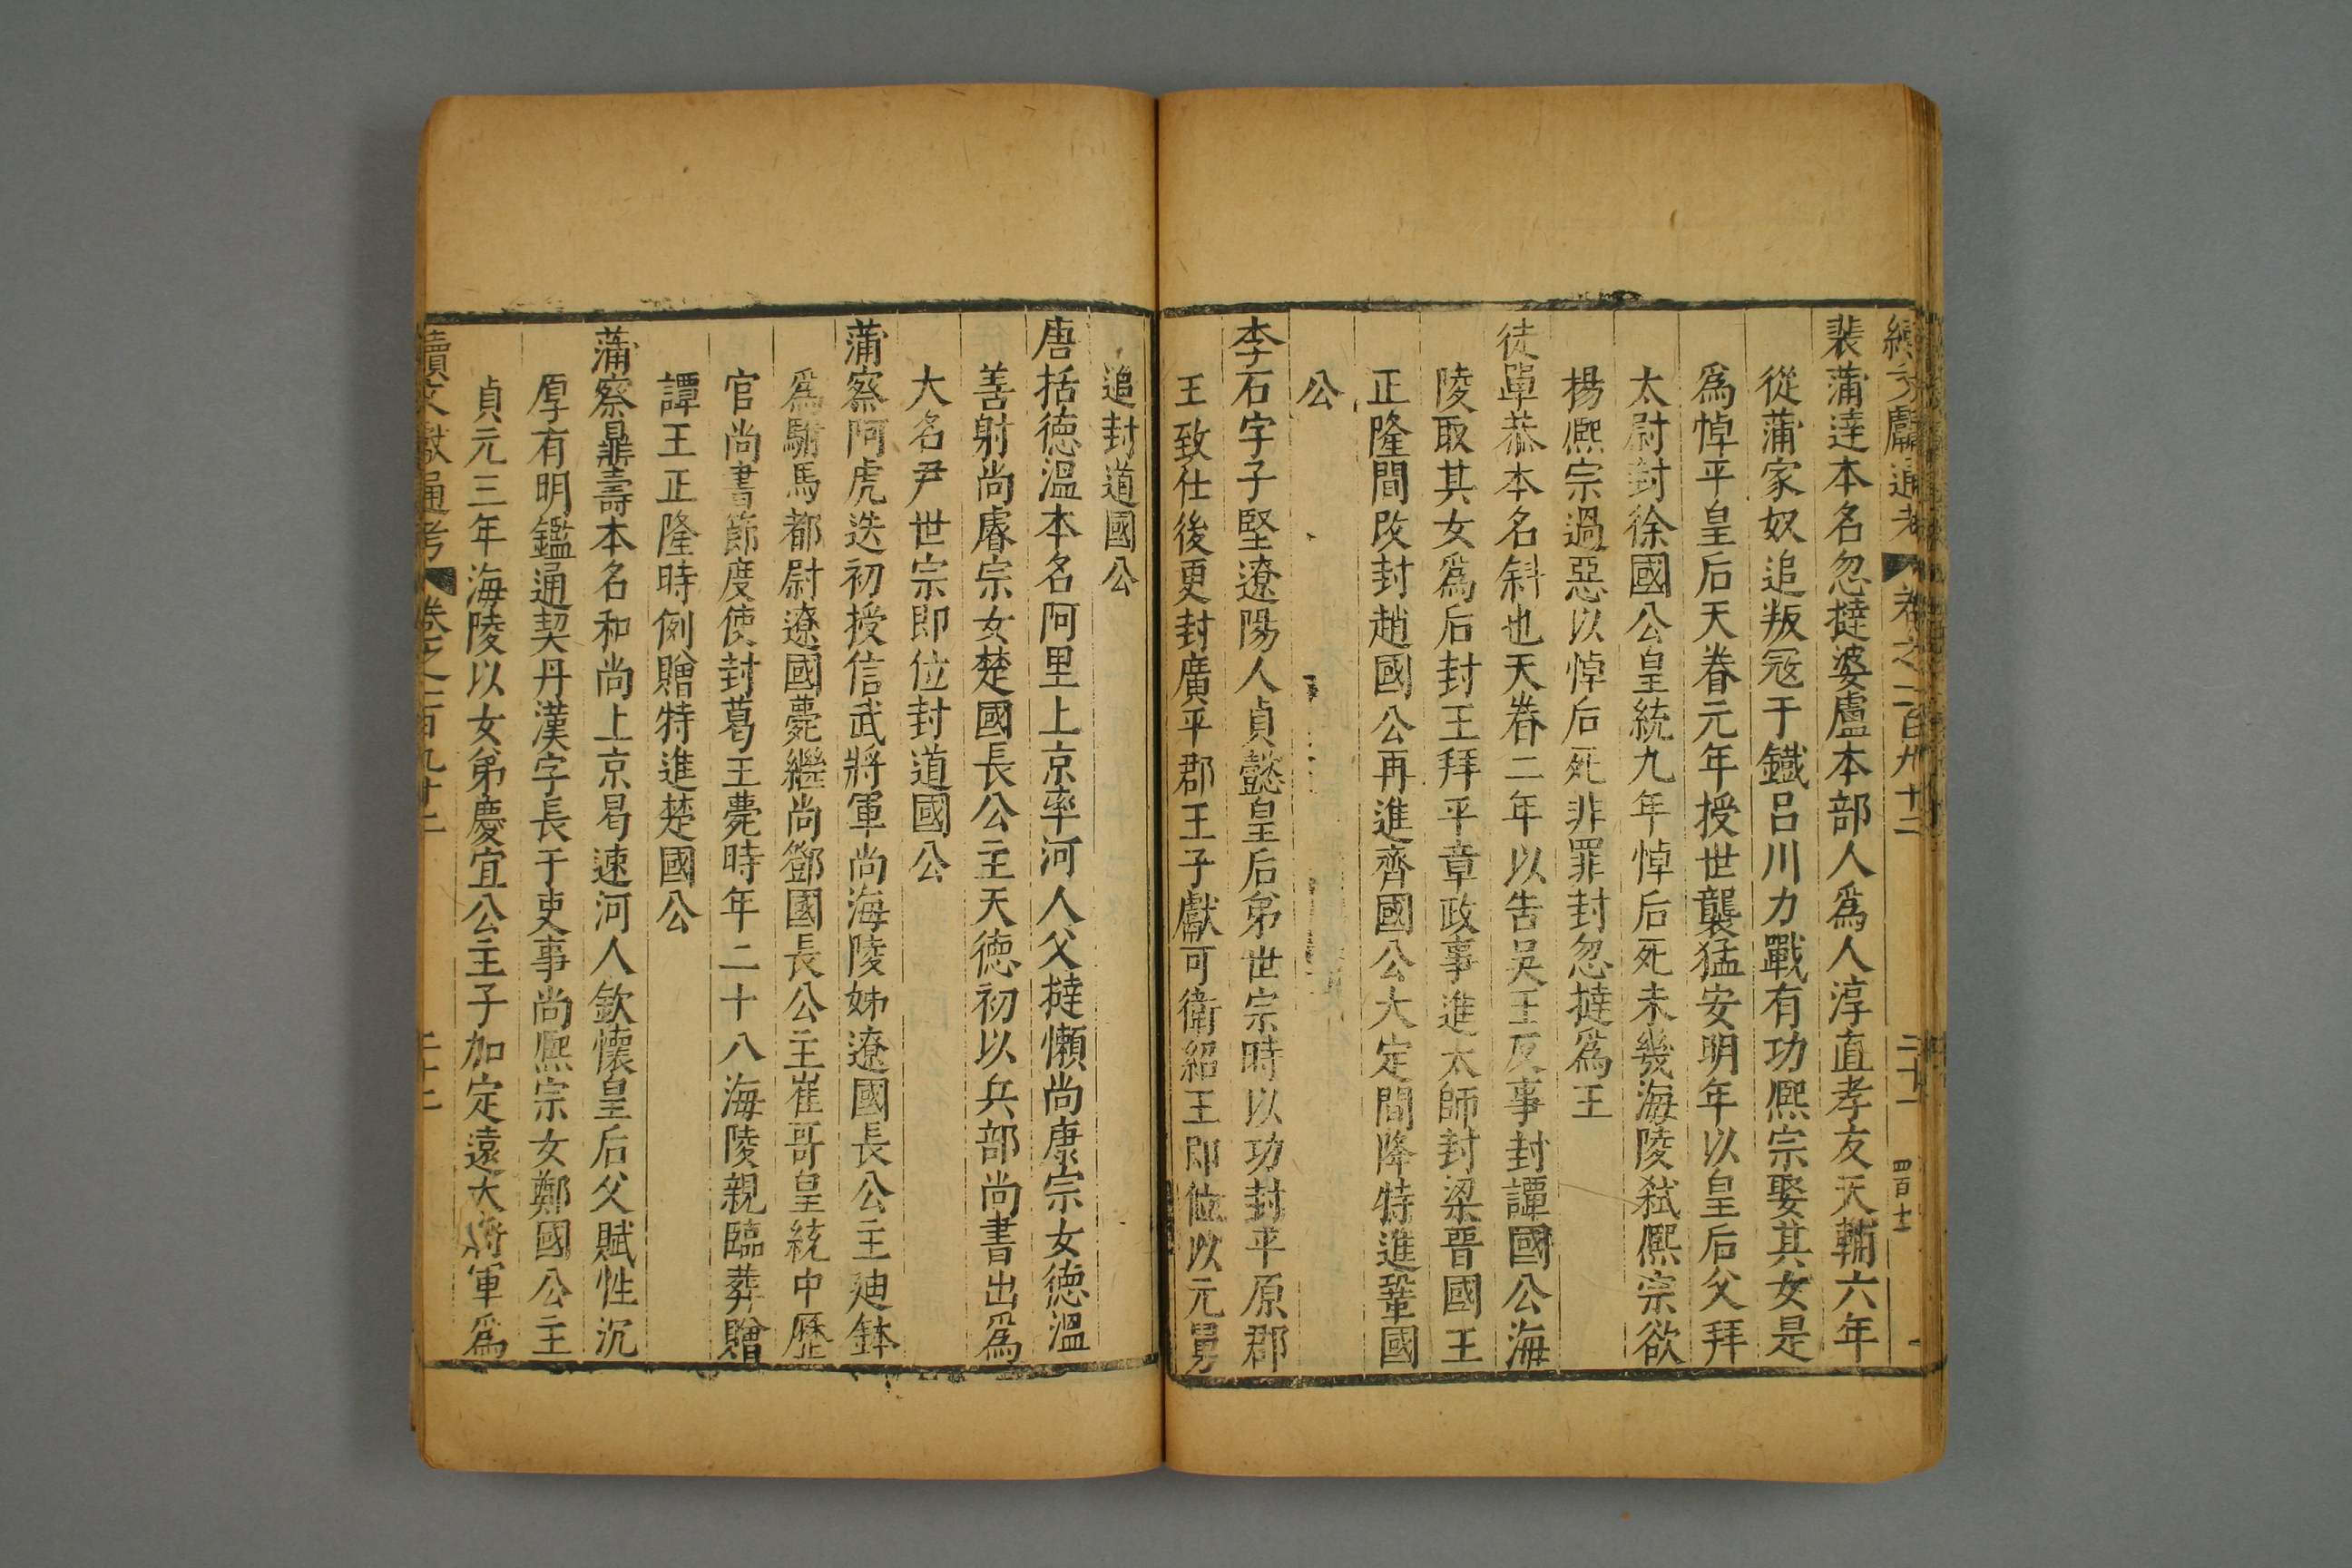 續文獻通考 卷之二百九十二 二十一 四百七
裴蒲達本名忽撻婆盧本部人爲人淳直孝友天輔六年
從蒲家奴追叛冦于鐵呂川力戰有功熈宗娶其女是
爲悼平皇后天眷元年授世襲猛安明年以皇后父拜
太尉封徐國公皇統九年悼后死未幾海陵弑熈宗欲
揚熈宗過惡以悼后死非罪封忽撻爲王
徒單恭本名斜也天眷二年以告吳王反事封譚國公海
陵取其女爲后封王拜平章政事進太師封梁晋國王
正隆間改封趙國公再進齊國公大定間降特進鞏國
公
李石字子堅遼陽人貞懿皇后弟世宗時以功封平原郡
王致仕後更封廣平郡王子獻可衛紹王即位以元舅
追封道國公
唐括德溫本名阿里上京率河人父撻懶尚康宗女德溫
善射尚睿宗女楚國長公主天德初以兵部尚書出爲
大名尹世宗即位封道國公
蒲察阿虎迭初授信武將軍尚海陵姊遼國長公主廸鉢
爲駙馬都尉遼國薨繼尚鄧國長公主崔哥皇統中歷
官尚書節度使封葛王薨時年二十八海陵親臨葬贈
譚王正隆時例贈特進楚國公
蒲察鼎壽本名和尚上京曷速河人欽懷皇后父賦性沉
厚有明鑑通契丹漢字長于吏事尚熈宗女鄭國公主
貞元三年海陵以女弟慶宜公主子加定遠大將軍爲
續文獻通考 卷之二百九十二 二十二